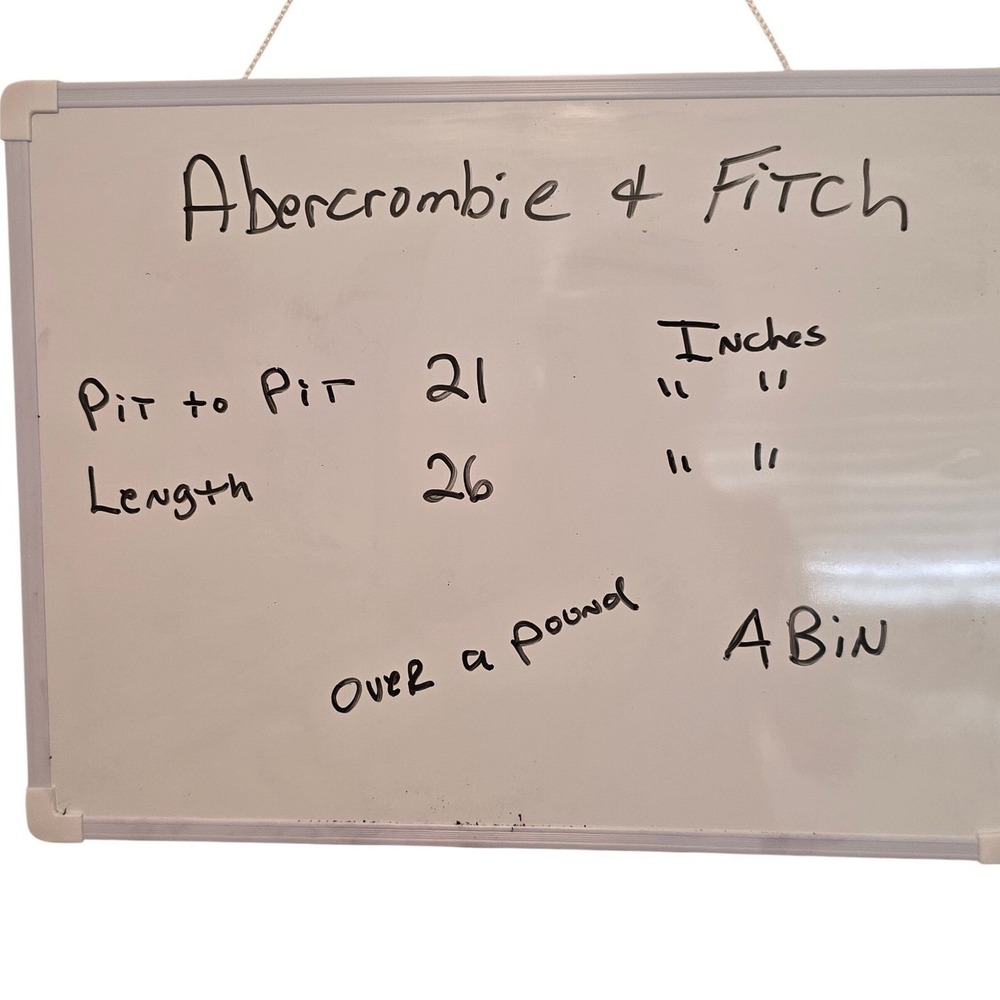 Abercrombie & Fitch
Inches
Pit to Pit 21 " "
Length 26 " "
over a pound
A Bin